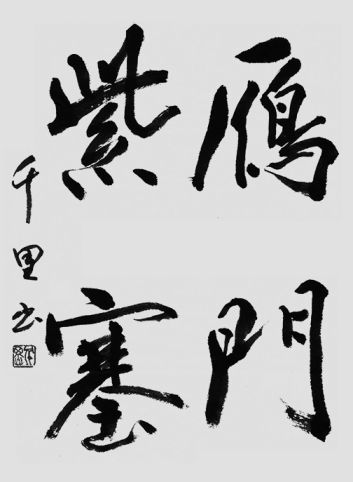 鴈門
紫塞
千里书